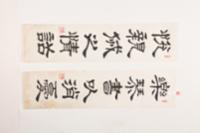 悅親戚之情話
樂琴書以消憂